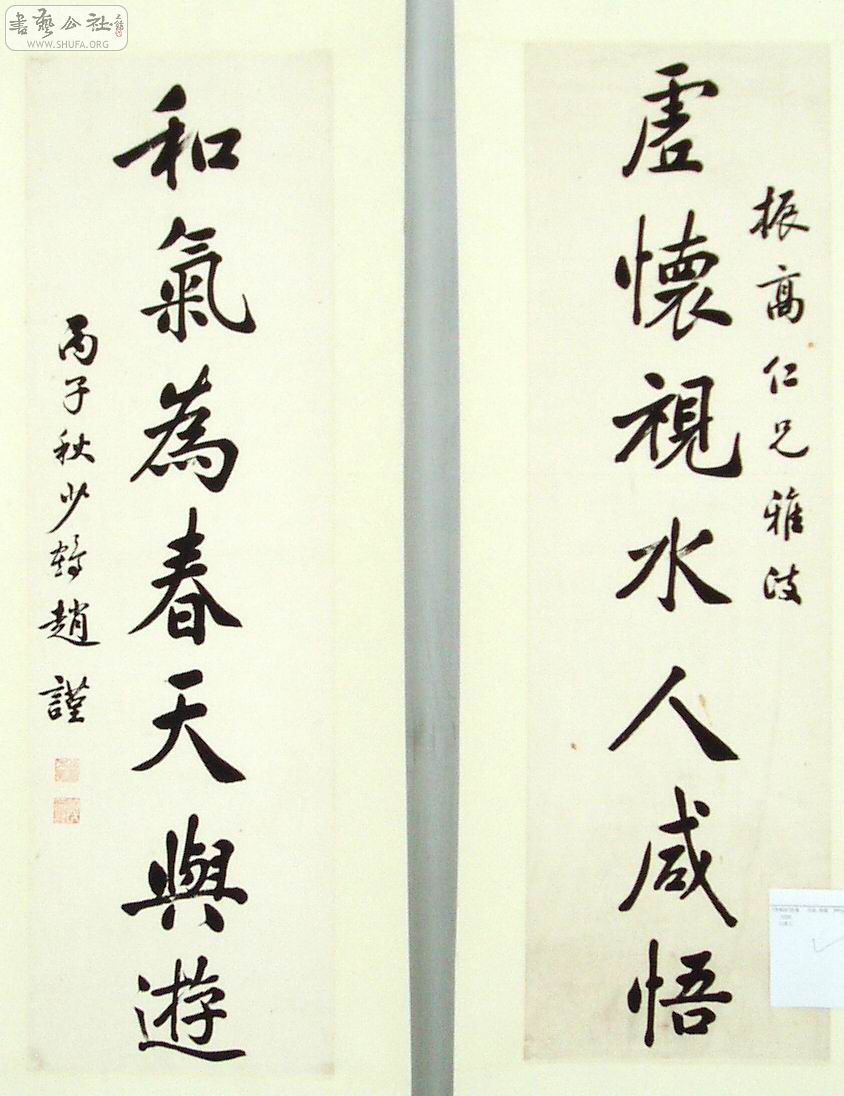 書藝公社
WWW.SHUFA.ORG
振高仁兄雅政
虚懷視水人咸悟
和氣為春天與遊
丙子秋少鶴趙謹